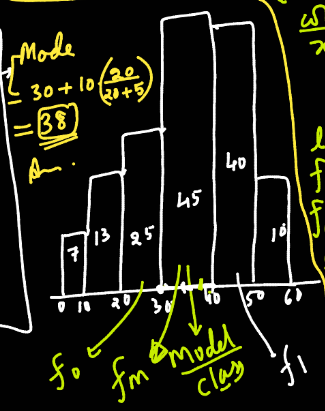 Mode
= 30 + 10 (20/20+5)
= 38
Am.
7
13
25
45
40
10
0 10 20 30 40 50 60
f0
fm
Model
class
f1